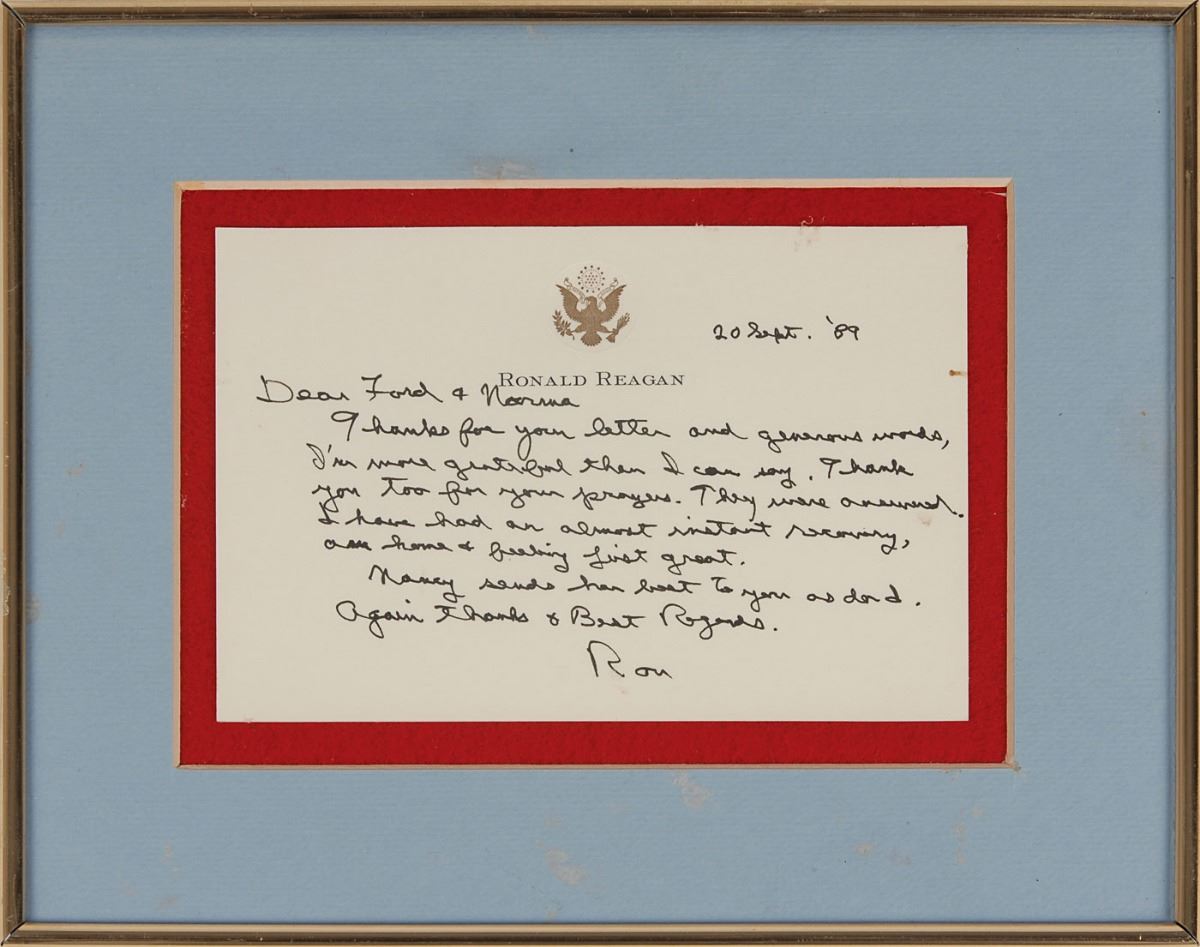 20 Sept. '89
RONALD REAGAN
Dear Ford & Norma
Thanks for your letter and generous words,
I'm more grateful than I can say. Thank
you too for your prayers. They were answered.
I have had an almost instant recovery,
am home & feeling just great.
Nancy sends her best to you as do I.
Again thanks & Best Regards.
Ron